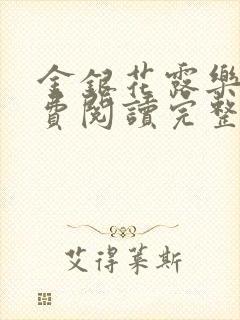 金銀花露樂
費閱讀完整
艾得萊斯